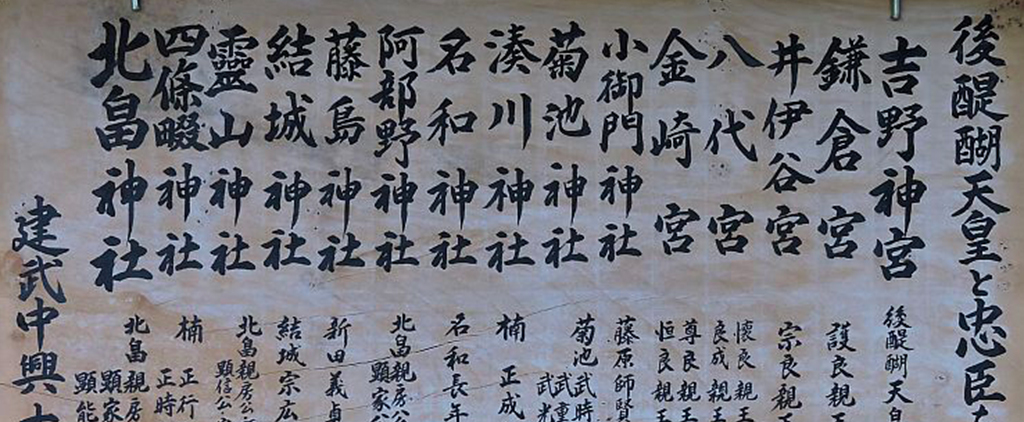 後醍醐天皇と忠臣
吉野神宮
後醍醐天皇
鎌倉宮
護良親王
井伊谷宮
宗良親王
八代宮
懐良親王
良成親王
金崎宮
尊良親王
恒良親王
小御門神社
藤原師賢
菊池神社
菊池武時
武重
武光
湊川神社
楠正成
名和神社
名和長年
阿部野神社
北畠親房公
顕家
藤島神社
新田義貞
結城神社
結城宗広
靈山神社
北畠親房公
顕信公
四條畷神社
楠正行
正時
北畠神社
北畠親房
顕家
顕能
建武中興